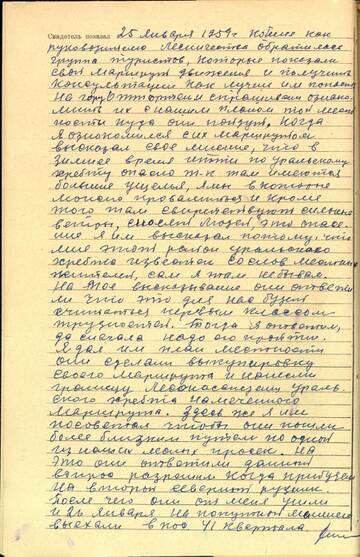 Свидетель показал 25 января 1959 г. ко мне как
руководителю лесничества обратилась
группа туристов, которые показали
свой маршрут движения и получить
консультацию как лучше им попасть
на гору Отортен и спрашивали ознако-
мить их с нашим планом той мест-
ности куда они пойдут, когда
я ознакомился с их маршрутом
высказал свое мнение, что в
зимнее время итти по уральскому
хребту опасно т-к там имеются
большие ущелья, ямы в которые
можно провалиться и кроме
того там свирепствуют сильные
ветры, сносят людей. Это
я им высказал потому, что
мне этот район уральского
хребта известен со слов местных
жителей, сам я там не бывал.
На мое высказывание они ответи-
ли что это для нас будет
считаться первым классом
трудности. Тогда я ответил,
да сначала надо его пройти.
Я дал им план местности
они сделали выкупировку
своего маршрута и
границу лесонасаждения ураль-
ского хребта намеченного
маршрута. Здесь же я им
посоветовал чтобы они пошли
более близким путем по одной
из наших малых просек. На
это они ответили данный
вопрос разрешим когда прибудем
на второй северный рудник
после чего они от меня ушли
и 26 января на попутной машине
выехали в пос. 41 квартала